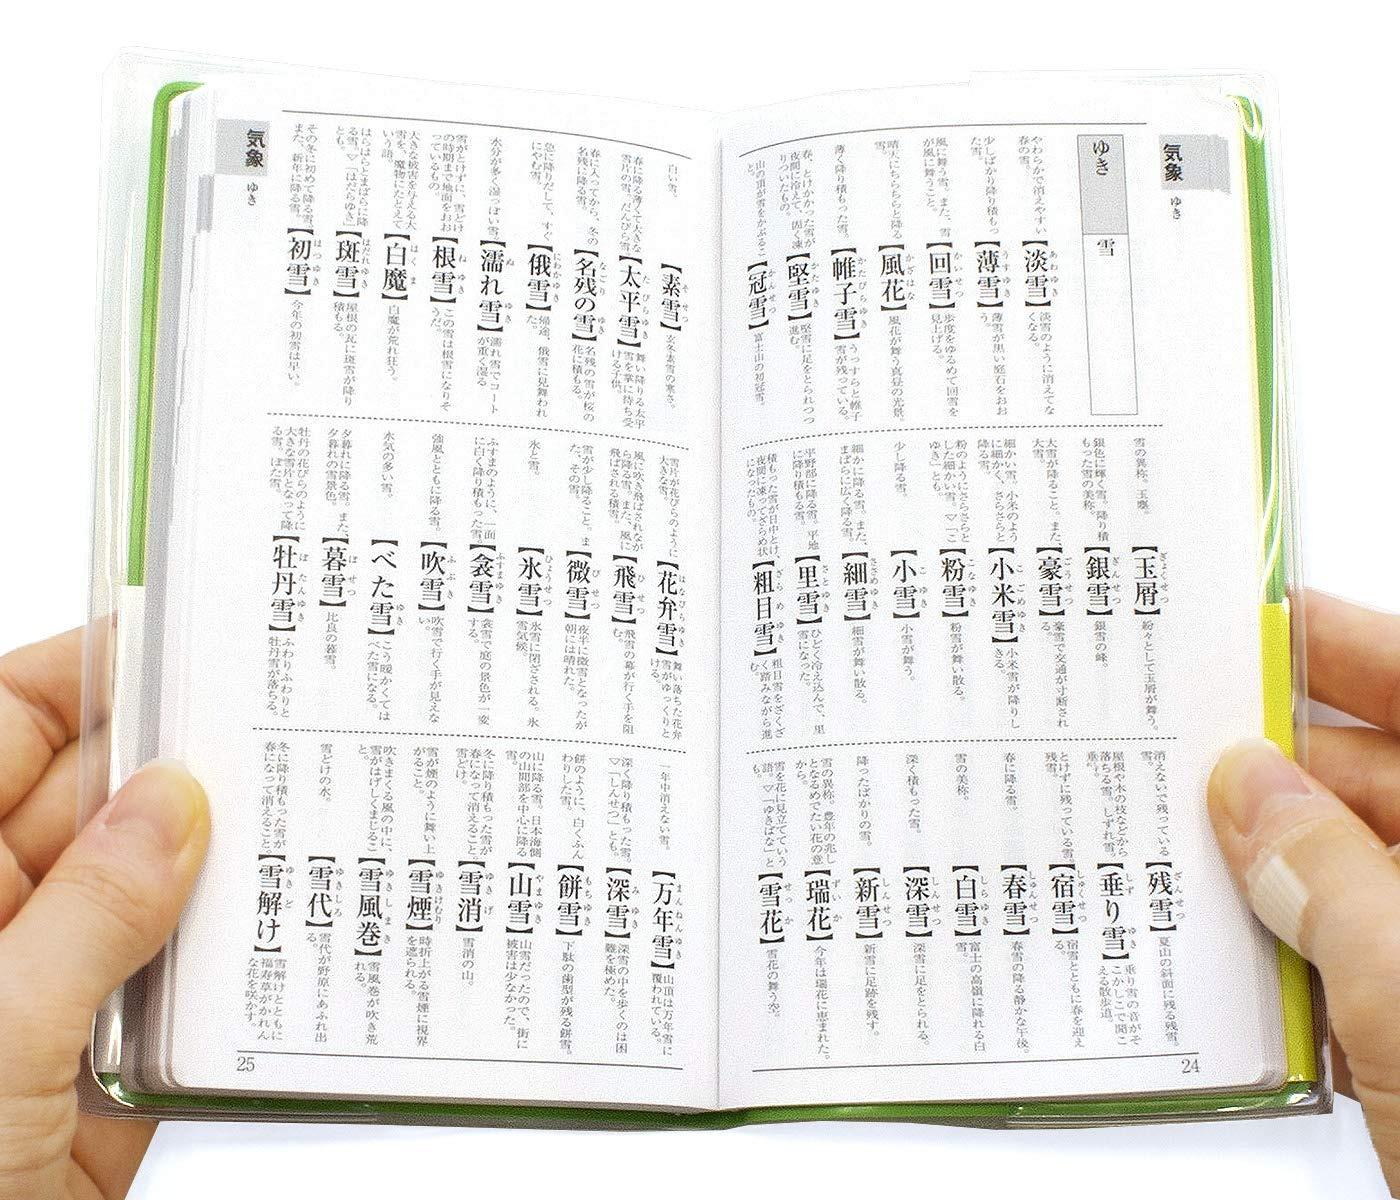 気象
ゆき
ゆき
雪
やわらかで消えやすい
春の雪。
あわゆき
【淡雪】
淡雪のように消えてな
くなる。
少しばかり降り積もっ
た雪。
うすゆき
【薄雪】
薄雪が黒い庭石をおお
う。
風に舞う雪。また、雪
が風に舞うこと。
かいせつ
【回雪】
歩度をゆるめて回雪を
見上げる。
晴天にちらちらと降る
雪。
かざはな
【風花】
風花が舞う真昼の光景。
薄く降り積もった雪。
かたびらゆき
【帷子雪】
うっすらと帷子
雪が残っている。
春、とけかかった雪が
夜間に冷えて、固く凍
りついたもの。
かたゆき
【堅雪】
堅雪に足をとられつつ
進む。
山の頂が雪をかぶるこ
と。
かんせつ
【冠雪】
富士山の初冠雪。
雪の異称。玉塵。
ぎょくせつ
【玉屑】
紛々として玉屑が舞う。
銀色に輝く雪。降り積
もった雪の美称。
ぎんせつ
【銀雪】
銀雪の峰。
大雪が降ること。また、
大雪。
ごうせつ
【豪雪】
豪雪で交通が寸断され
る。
細かい雪。小米のよう
に細かく、さらさらと
降る雪。
こごめゆき
【小米雪】
小米雪が降りし
きる。
粉のようにさらさらと
した細かい雪。▽「こ
ゆき」とも。
こなゆき
【粉雪】
粉雪が舞い散る。
少し降る雪。
こゆき
【小雪】
小雪が舞う。
細かに降る雪。また、
まばらに広く降る雪。
ささめゆき
【細雪】
細雪が舞い散る。
平野部に降る雪。平地
に降り積もる雪。
さとゆき
【里雪】
ひどく冷え込んで、里
雪になった。
積もった雪が日中とけ、
夜間に凍ってざらめ状
になったもの。
ざらめゆき
【粗目雪】
粗目雪をざくざ
く踏みながら進
む。
消えないで残っている
雪。
ざんせつ
【残雪】
夏山の斜面に残る残雪。
屋根や木の枝などから
落ちる雪。しずれ雪。
垂。
しずりゆき
【垂り雪】
垂り雪の音がそ
こかしこで聞こ
える散歩道。
とけずに残っている雪。
残雪。
しゅくせつ
【宿雪】
宿雪とともに春を迎え
る。
春に降る雪。
しゅんせつ
【春雪】
春雪の降る静かな午後。
雪の美称。
しらゆき
【白雪】
富士の高嶺に降れる白
雪。
深く積もった雪。
しんせつ
【深雪】
深雪に足をとられる。
降ったばかりの雪。
しんせつ
【新雪】
新雪に足跡を残す。
雪の異称。豊年の兆し
となるめでたい花の意
から。
ずいか
【瑞花】
今年は瑞花に恵まれた。
雪を花に見立てていう
語。▽「ゆきばな」と
も。
せっか
【雪花】
雪花の舞う空。
24
気象
ゆき
白い雪。
そせつ
【素雪】
玄冬素雪の寒さ。
春に降る薄くて大きな
雪片の雪。だんびら雪。
たびらゆき
【太平雪】
舞い降りる太平
雪を掌に待ち受
ける子供。
春に入ってから、冬の
名残に降る雪。
なごりゆき
【名残の雪】
名残の雪が桜の
花に積もる。
急に降りだして、すぐ
にやむ雪。
にわかゆき
【俄雪】
帰途、俄雪に見舞われ
た。
水分が多く湿っぽい雪。
ぬゆき
【濡れ雪】
濡れ雪でコート
が重く湿る
雪がとけずに、雪どけ
の時期まで地面をおお
っているもの
ねゆき
【根雪】
この雪は根雪になりそ
うだ。
大きな被害を与える大
雪を、魔物にたとえて
いう語。
はくま
【白魔】
白魔が荒れ狂う。
はらはらとまばらに降
る雪。▽「はだらゆき」
とも。
はだれゆき
【斑雪】
屋根の瓦に斑雪が降り
積もる。
その冬に初めて降る雪。
また、新年に降る雪。
はつゆき
【初雪】
今年の初雪は早い。
雪片が花びらのように
大きな雪。
はなびらゆき
【花弁雪】
舞い落ちた花弁
雪がゆっくりと
ける。
風に吹き飛ばされなが
ら降る雪。また、風に
飛ばされる積雪。
ひせつ
【飛雪】
飛雪の幕が行く手を阻
む。
雪が少し降ること。ま
た、その雪。
びせつ
【微雪】
夜半に微雪となったが
朝には晴れた。
氷と雪。
ひょうせつ
【氷雪】
氷雪に閉ざされる。氷
雪気候。
ふすまのように、一面
に白く降り積もった雪。
ふすまゆき
【衾雪】
衾雪で庭の景色が一変
する。
強風とともに降る雪。
ふぶき
【吹雪】
吹雪で行く手が見えな
い。
水気の多い雪。
ゆき
【べた雪】
こう暖かくては
べた雪になる。
夕暮れに降る雪。また、
夕暮れの雪景色。
ぼせつ
【暮雪】
比良の暮雪。
牡丹の花びらのように
大きな雪片となって降
る雪。ぼた雪。
ぼたんゆき
【牡丹雪】
ふわりふわりと
牡丹雪が落ちる。
一年中消えない雪。
まんねんゆき
【万年雪】
山頂は万年雪に
覆われている。
深く降り積もった雪。
▽「しんせつ」とも。
みゆき
【深雪】
深雪の中を歩くのは困
難を極めた。
餅のように、白くふん
わりした雪。
もちゆき
【餅雪】
下駄の歯型が残る餅雪。
山に降る雪。日本海側
の山間部を中心に降る
雪。
やまゆき
【山雪】
山雪だったので、街に
被害は少なかった。
冬に降り積もった雪が
春になって消えること。
雪どけ。
ゆきげ
【雪消】
雪消の山。
雪が煙のように舞い上
がること。
ゆきけむり
【雪煙】
時折上がる雪煙に視界
を遮られる。
吹きまくる風の中に、
雪がはげしくまじるこ
と。
ゆきしまき
【雪風巻】
雪風巻が吹き荒
れる。
雪どけの水。
ゆきしろ
【雪代】
雪代が野原にあふれ出
る。
冬に降り積もった雪が
春になって消えること。
ゆきど
【雪解け】
雪解けとともに
福寿草がかれん
な花を咲かす。
25